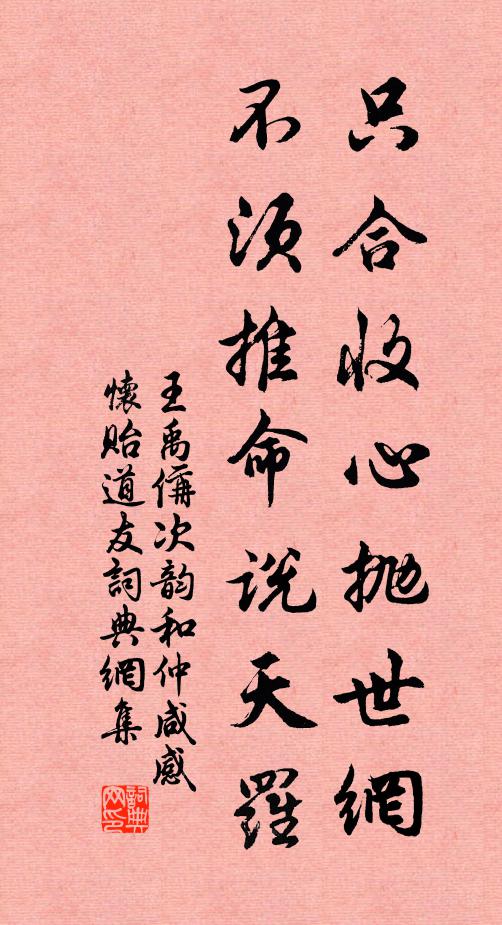 只合收心拋世網
不須推命說天羅
王禹偁次韵和仲咸感
懷貽道友詞典網集
詞典網印